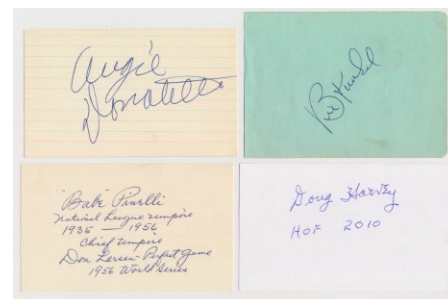 Augie
Donatelli
Bill Kunkel
"Babe" Pinelli
National League umpire
1935 — 1956
Chief umpire
Don Larsen - Perfect Game
1956 World Series
Doug Harvey
HOF 2010